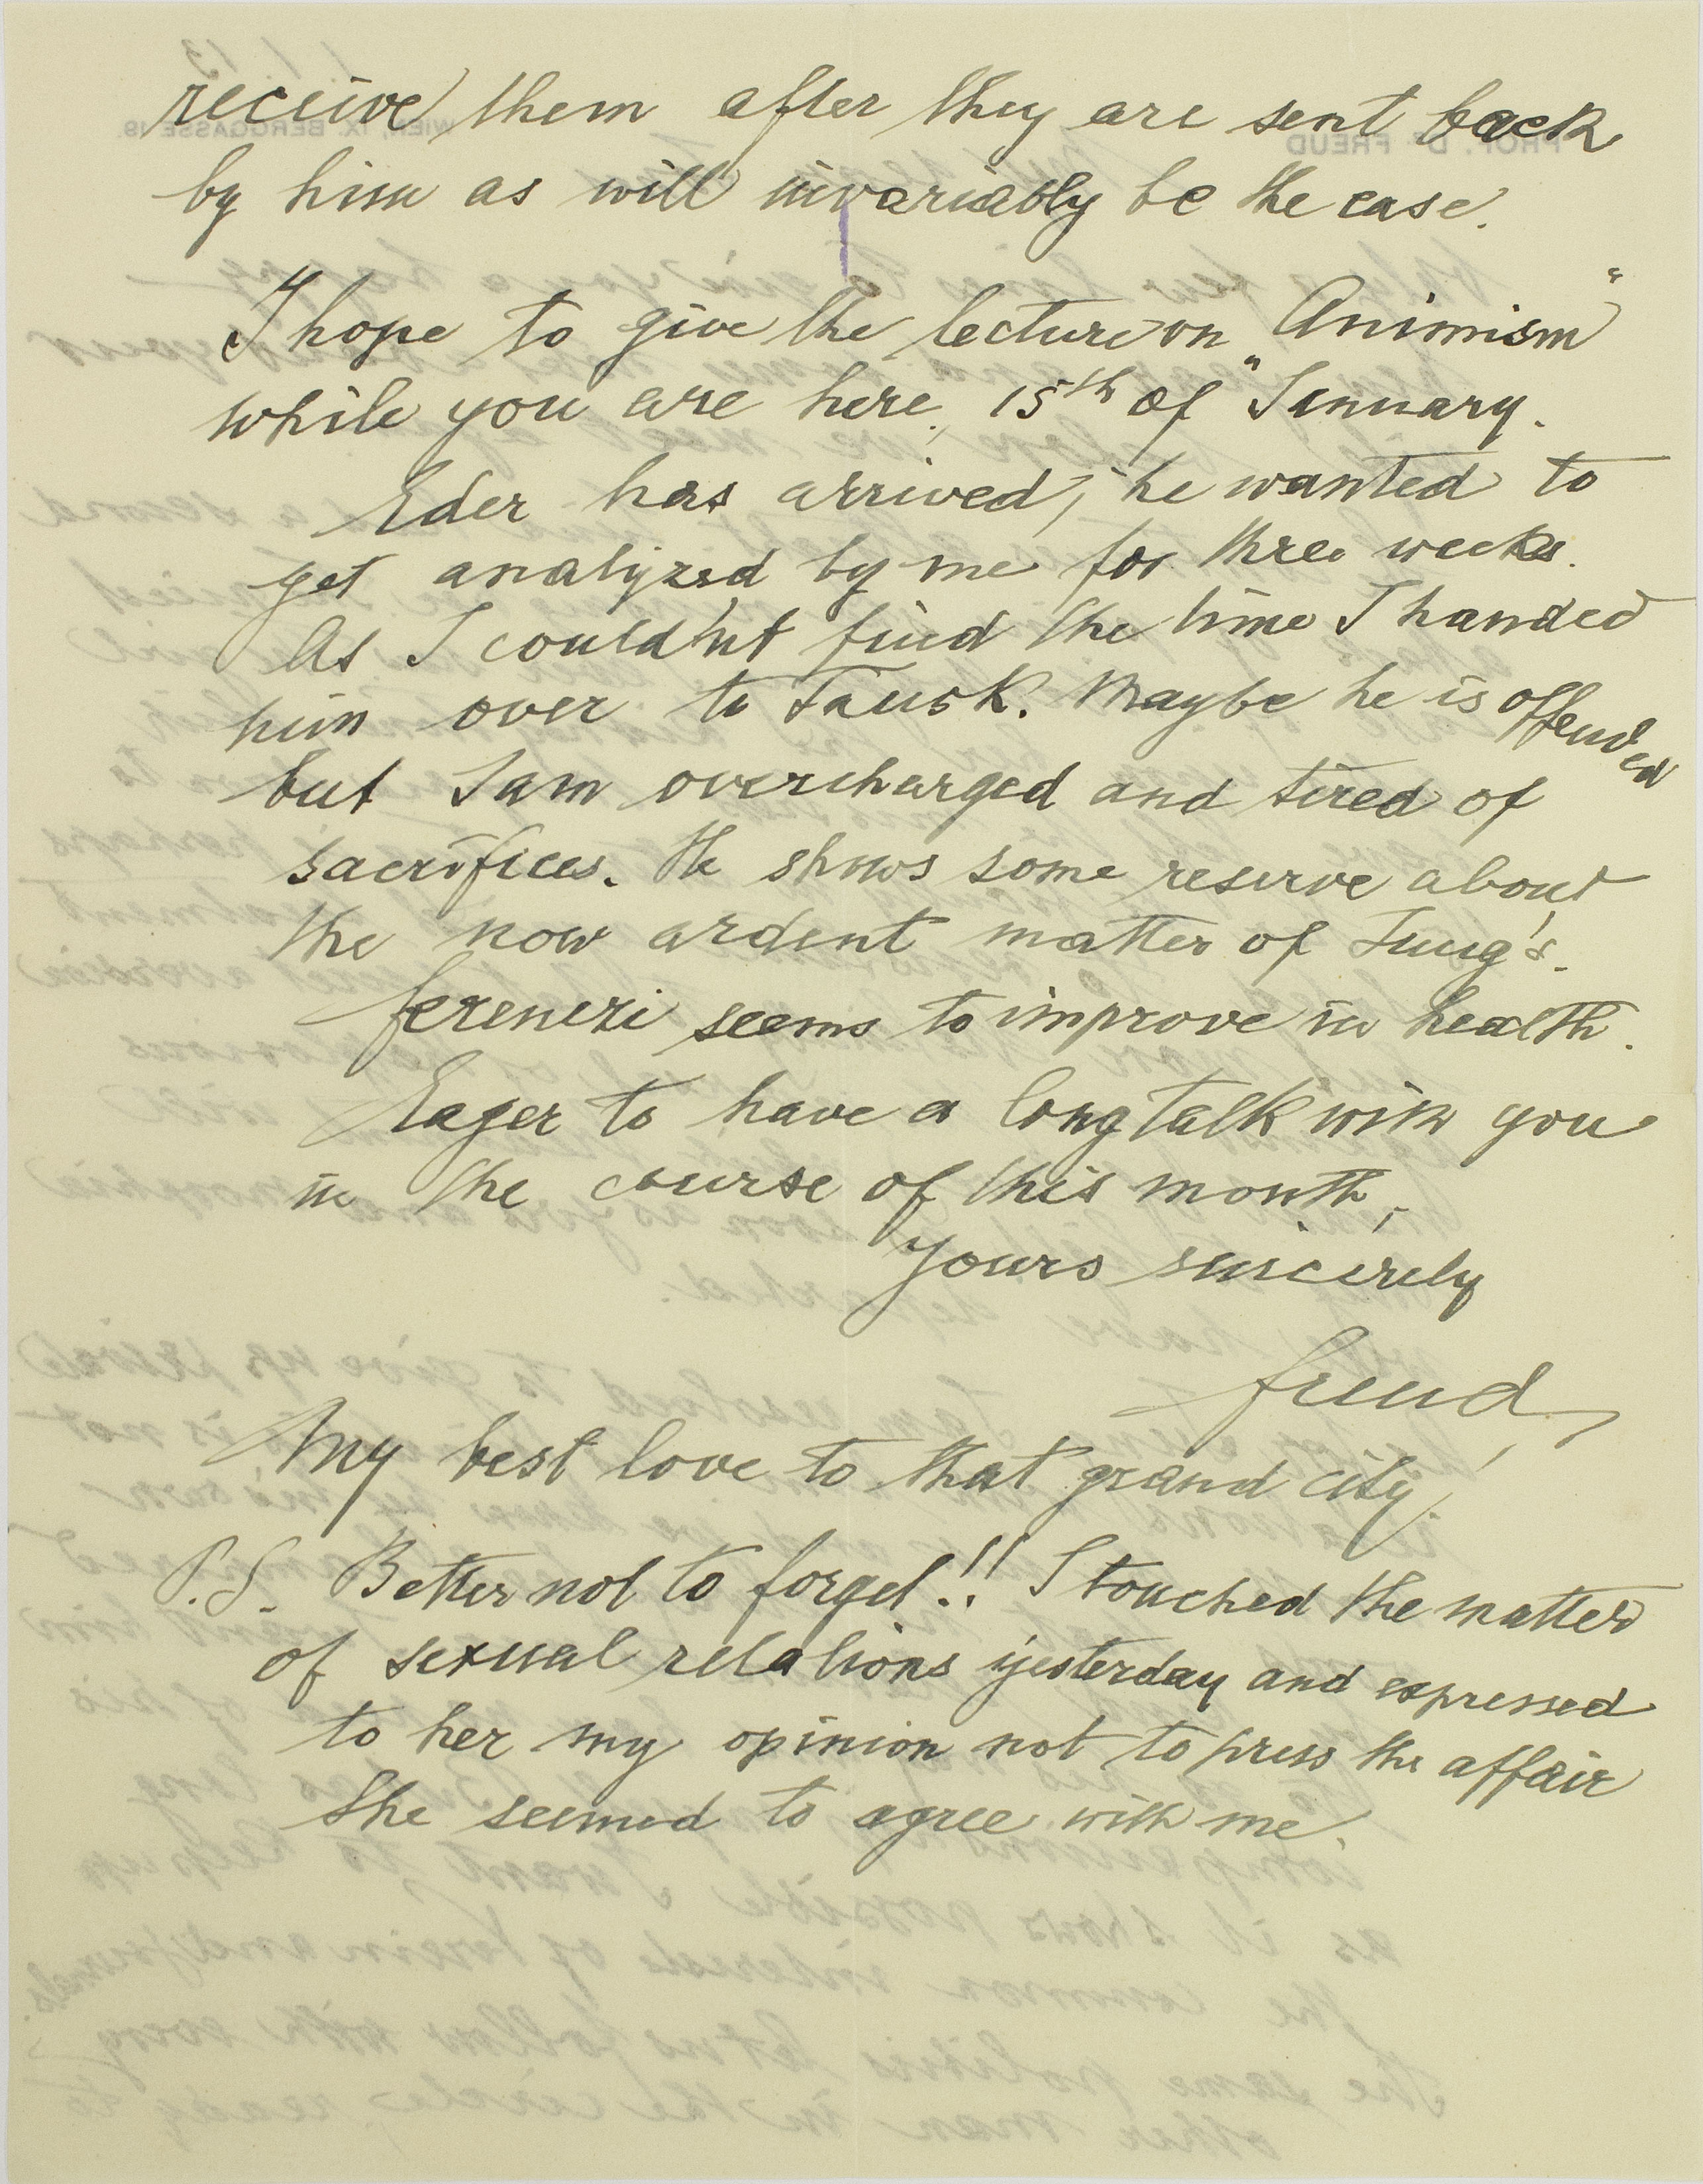 receive them after they are sent back
by him as will invariably be the case.
I hope to give the lecture on „Animism“
while you are here, 15th of January.
Eder has arrived, he wanted to
get analyzed by me for three weeks.
As I could'nt find the time I handed
him over to Tausk. Maybe he is offended
but I am overcharged and tired of
sacrifices. He shows some reserve about
the now ardent matter of Jung's.
Ferenczi seems to improve in health.
Eager to have a long talk with you
in the course of this month,
Yours sincerely
Freud
My best love to that grand city!
P.S. Better not to forget!! I touched the matter
of sexual relations yesterday and expressed
to her my opinion not to press the affair
She seemed to agree with me.